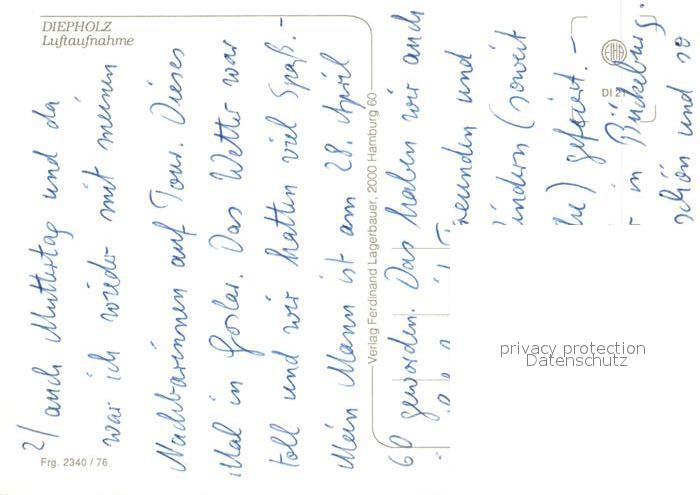 DIEPHOLZ
Luftaufnahme
2/ auch Muttertag und da
war ich wieder mit meinen
Nachbarinnen auf Tour. Dieses
Mal in Goslar. Das Wetter war
toll und wir hatten viel Spaß. -
Mein Mann ist am 28. April
60 geworden. Das haben wir auch
reunden und
indern (soweit
) gefeiert. -
in Bückeburg.
schön und so
Verlag Ferdinand Lagerbauer, 2000 Hamburg 60
DI 21
Frg. 2340 / 76
privacy protection
Datenschutz